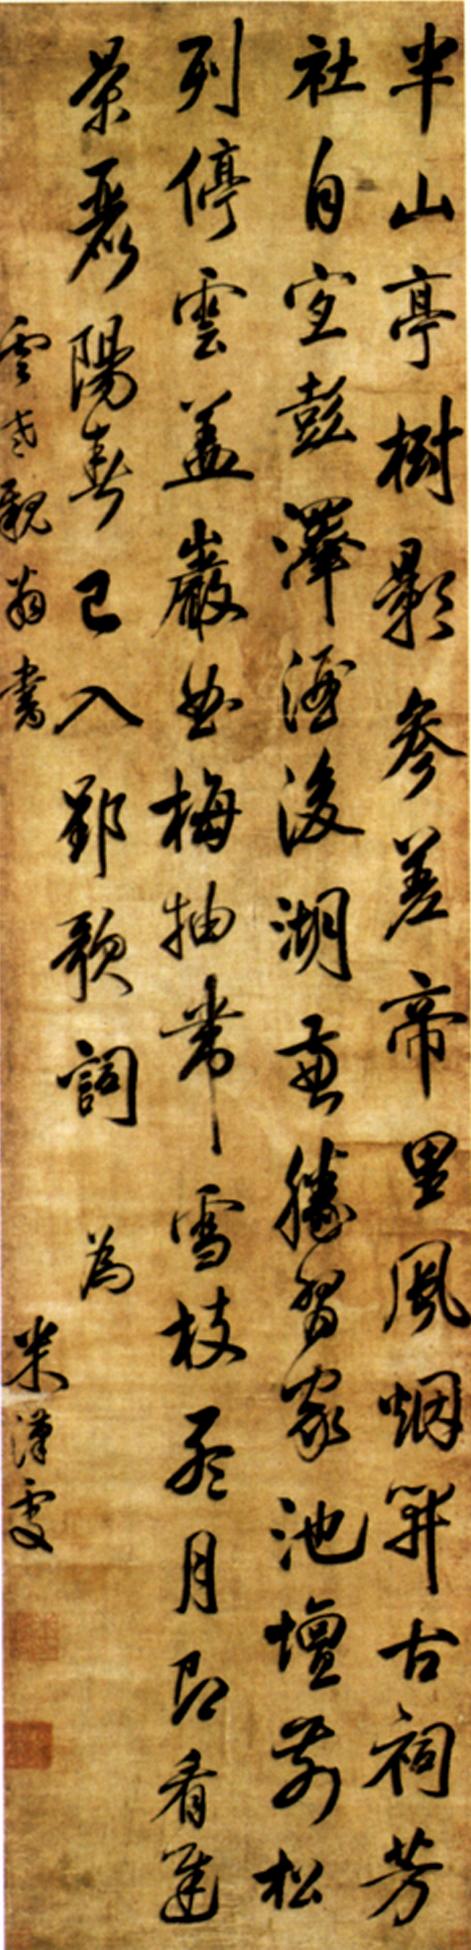 半山亭樹影參差帝里風烟開古祠芳
社自宜彭澤酒後湖勝習家池壇前松
列停雲蓋巖曲梅抽帶雪枝月即看遲
景麗陽春已入郢歌詞 為
雲老親翁書 米漢雯